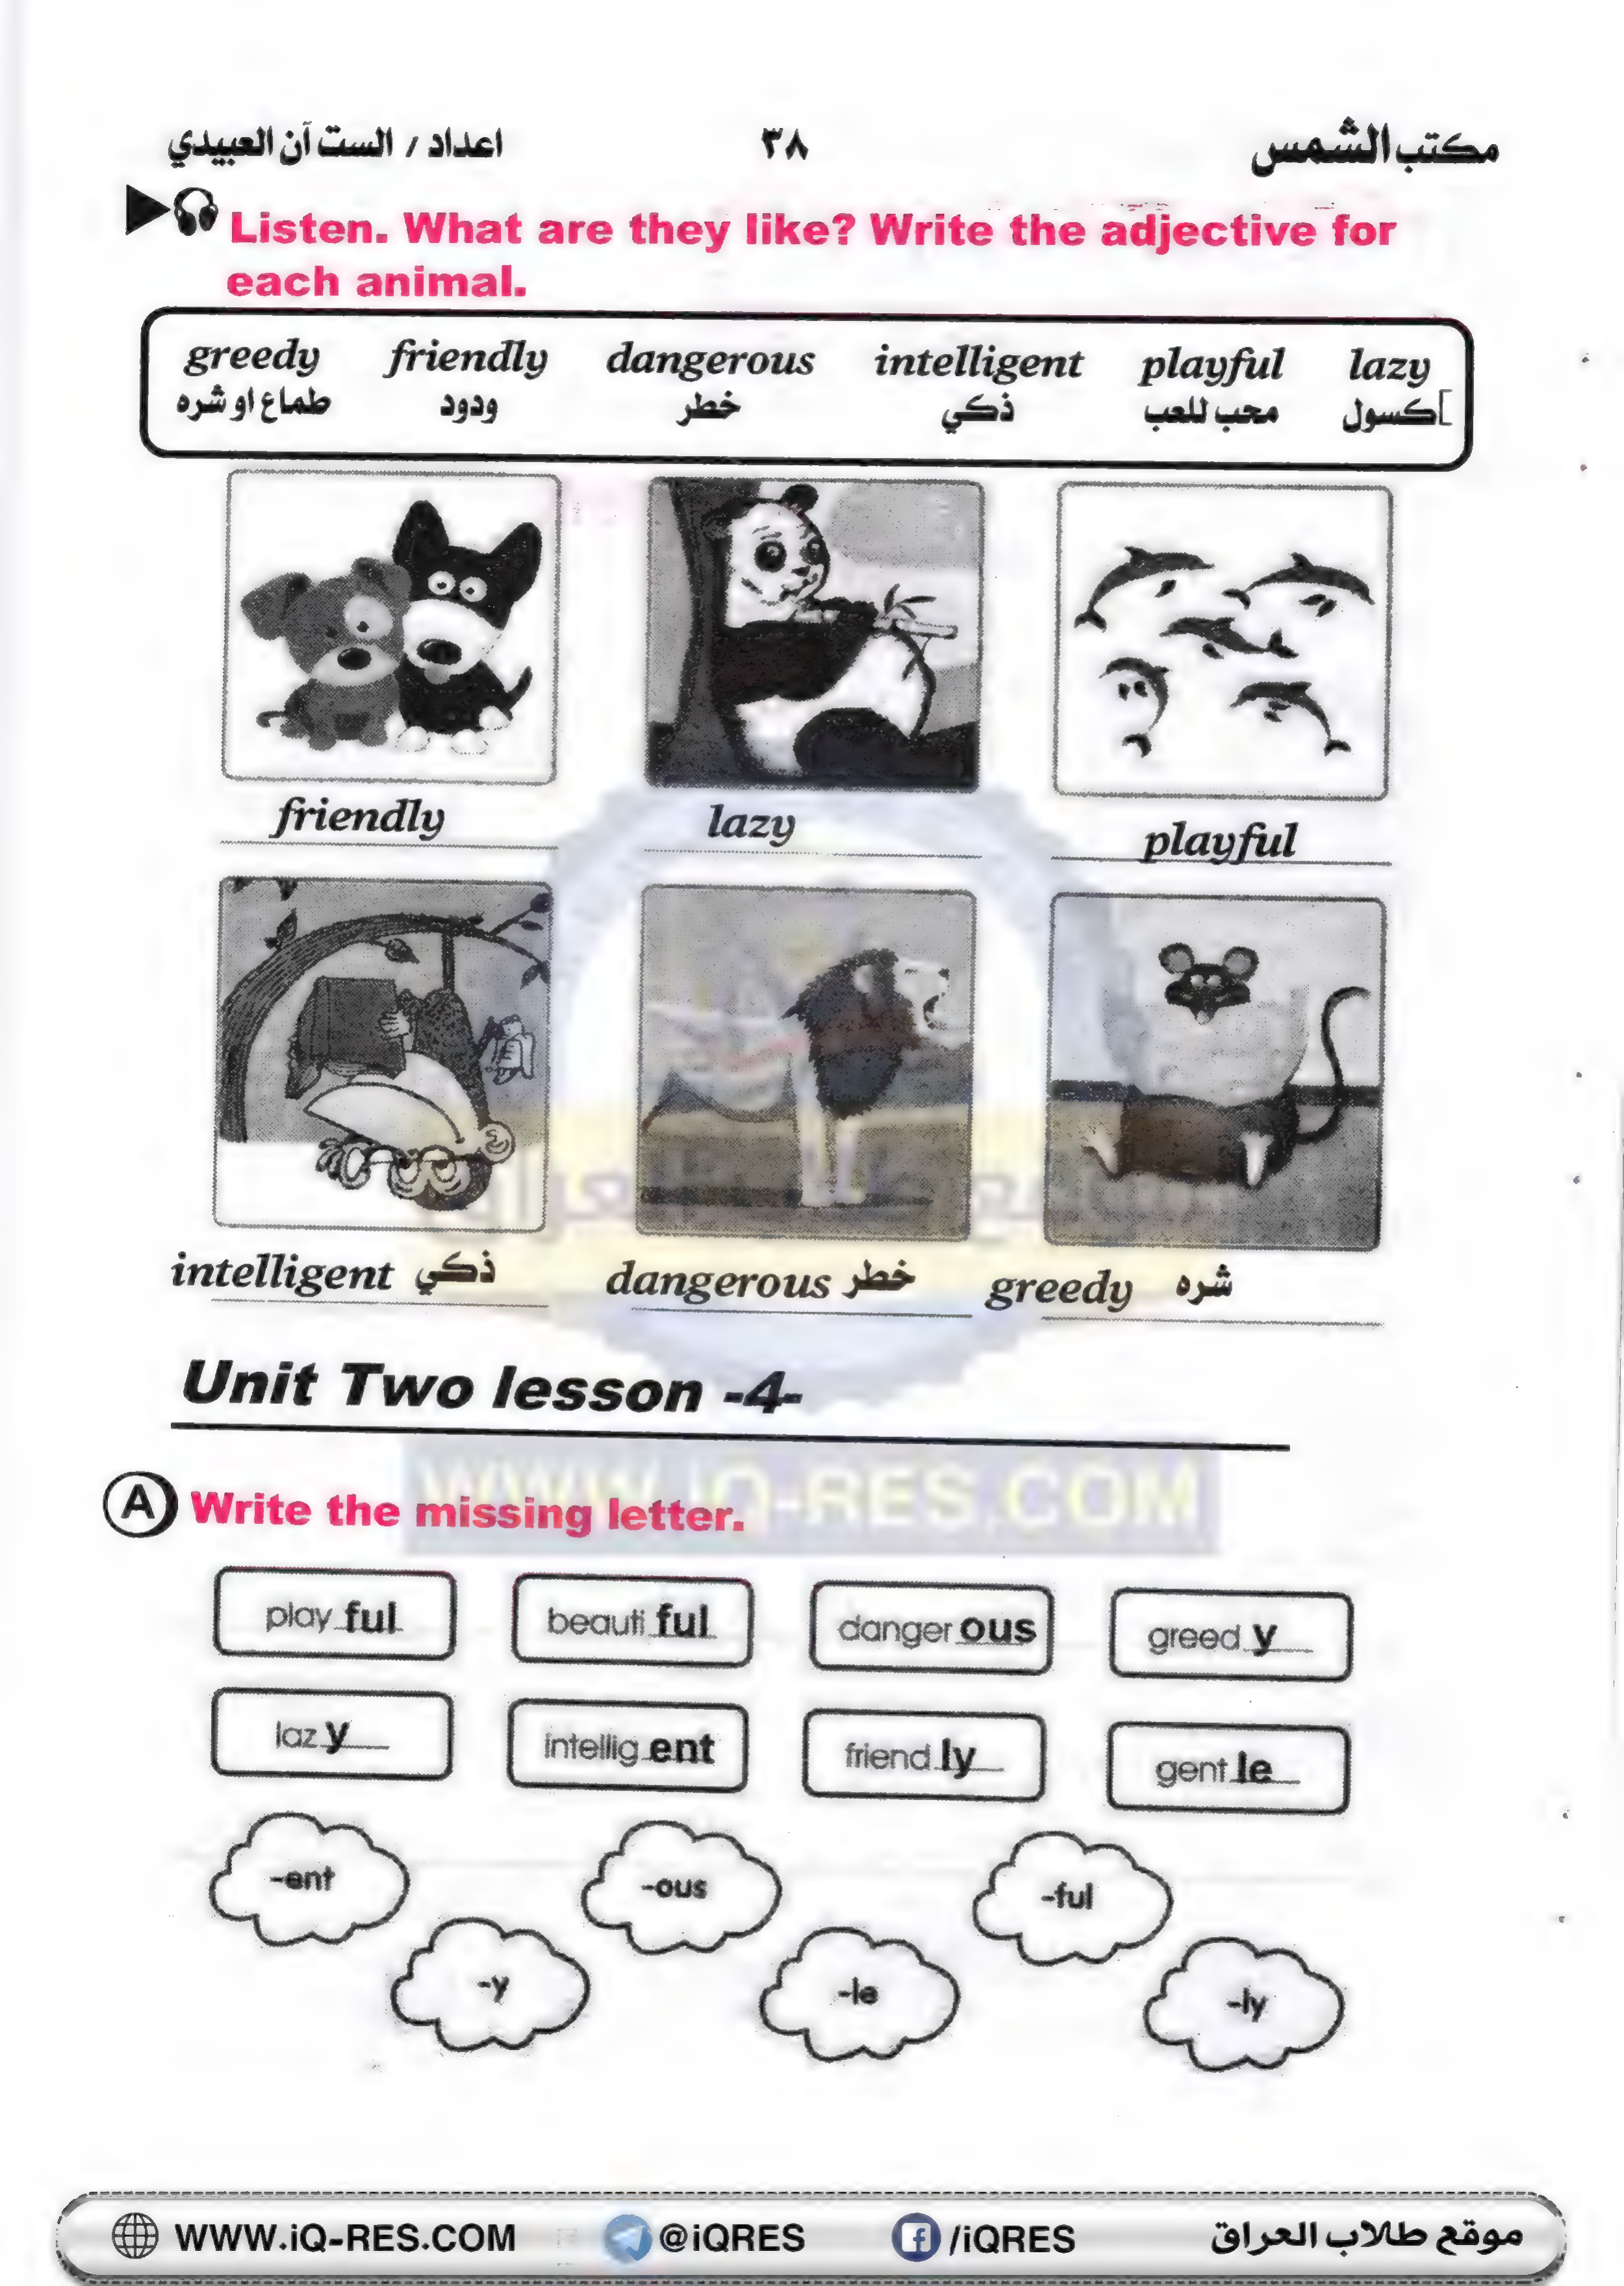 مكتب الشمس ٣٨ اعداد / الست آن العبيدي
Listen. What are they like? Write the adjective for
each animal.
greedy friendly dangerous intelligent playful lazy
طماع او شره ودود خطر ذكي محب للعب كسول
friendly lazy playful
intelligent ذكي dangerous خطر greedy شره
Unit Two lesson -4-
WWW.iQ-RES.COM
A Write the missing letter.
play ful beauti ful danger ous greed y
laz y intellig ent friend ly gent le
-ent -ous -ful
-y -le -ly
WWW.iQ-RES.COM @iQRES /iQRES موقع طلاب العراق